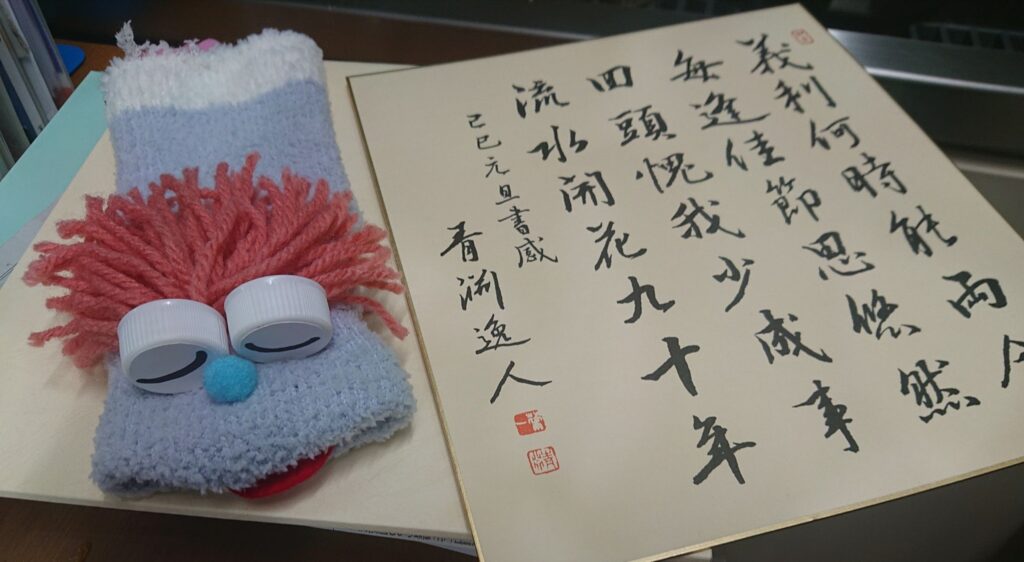 義利何時能両
毎逢佳節思悠然
回頭愧我少成事
流水開花九十年
己巳元旦書感
青渕逸人